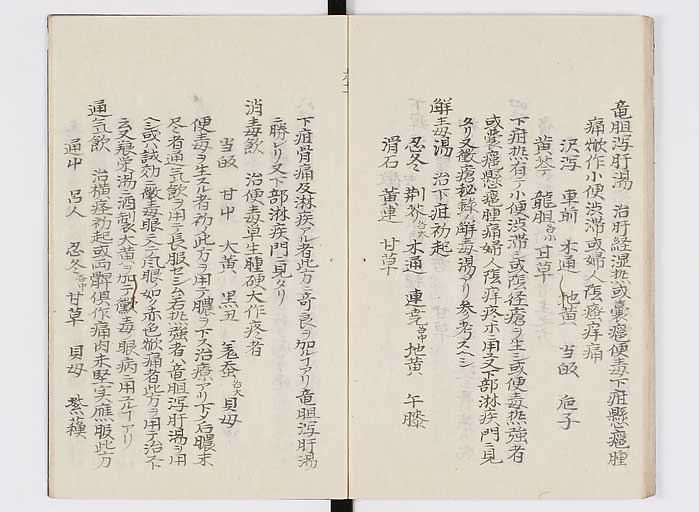 竜胆泻肝湯　治肝経湿热或嚢癰便毒下疳懸癰腫
痛㷔作小便渋滞或婦人陰癢痒痛
沢泻　車前　木通　地黄　当皈　梔子
黄芩　龍胆各小　甘草
下疳熱有テ小便渋滞シ或陰茎瘡ヲ生シ或便毒熱強者
或嚢癰懸癰腫痛婦人陰痒疼ホ用又下部淋疾門ニ見
タリ又黴瘡秘録ノ解毒湯アリ参考スヘシ
解毒湯　治下疳初起
忍冬　荊芥各大　木通　連壳各中　地黄　午膝
滑石　黄連　甘草
下疳骨痛及淋疾アル者此方ニ奇良ヲ加ルアリ竜胆泻肝湯
ニ勝レリ又下部淋疾門ニ見タリ
消毒飲　治便毒草生腫硬大作疼者
当皈　甘中　大黄　黒丑　姜蚕各大　貝母
便毒ヲ生スル者初ノ此方ヲ用テ膿ヲ下ス治療アリ下タ后膿末
尽者通气飲ヲ用テ長服セシム若热強者ハ竜胆泻肝湯ヲ用
ヘシ或ハ試効ニ黴毒眼天行风眼ノ如ク赤色㷔痛者此方ヲ用テ治スト
云又癈棠湯ニ酒製大黄ヲ加テ黴毒ノ眼病ニ用ユルアリ
通气飲　治横痃初起或両髀俱作痛肉未堅実應服此方
通中　呂人　忍冬各中　甘草　貝母　紫蘓